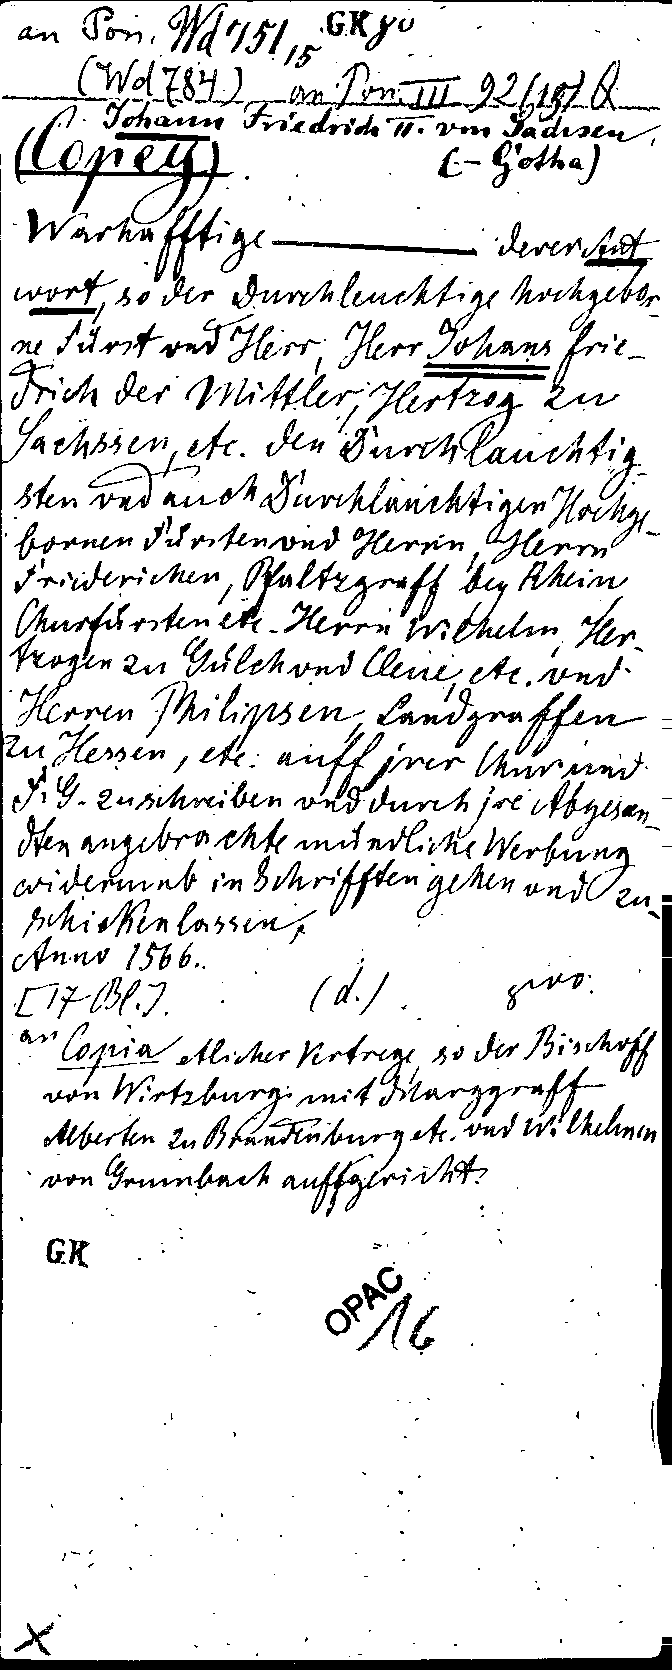 an Pon. Wd 751,15 GK 80
(Wd 784) an Pon. III 92(15) Q
s. Johann Friedrich II. von Sachsen,
(Copey). (-Gotha)
Warhafftige ——— derer Ant
wort, so der Durchleuchtige hochgebor-
ne Fürst vnd Herr, Herr Johans Frie-
drich der Mittler, Hertzog zu
Sachssen, etc. den Durchlauchtig
sten vnd auch Durchlauchtigen Hochge-
bornen Fürsten vnd Herrn, Herrn
Friederichen, Pfaltzgraff bey Rhein
Churfürsten etc. Herrn Wilhelm, Her-
tzogen zu Gülch vnd Cleue, etc. vnd
Herren Philipsen, Landgraffen
zu Hessen, etc. auff jrer Chur und
F. G. zuschreiben vnd durch jre Abgesan-
dten angebrachte mündliche Werbung
widerumb in Schrifften gehen vnd zu-
schicken lassen,
Anno 1566.
[17 Bl.]. (d.)
an Copia etlicher Vertrege, so der Bischoff
von Wirtzburg mit Marggraff
Alberten zu Brandenburg etc. vnd Wilhelmen
von Grumbach auffgericht.
GK
OPAC
16
X